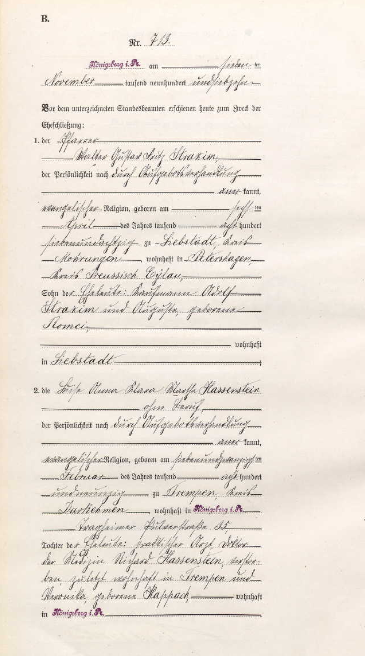 B.
Nr. 713.
Königsberg i. Pr. am sieben ten
November tausend neunhundert und siebzehn
Vor dem unterzeichneten Standesbeamten erschienen heute zum Zweck der
Eheschließung:
1. der Pfarrer
Walter Gustav Fritz Strakim,
der Persönlichkeit nach durch Aufgebotsverhandlung
kannt,
evangelischer Religion, geboren am sechs ten
April des Jahres tausend acht hundert
siebenundachtzig zu Liebstadt, Kreis
Mohrungen, wohnhaft in Petershagen,
Kreis Preussisch Eylau,
Sohn der Eheleute: Kaufmann Adolf
Strakim und Auguste, geborene
Romei,
wohnhaft
in Liebstadt
2. die Anna Klara Martha Hassenstein
ohne Beruf,
der Persönlichkeit nach durch Aufgebotsverhandlung
kannt,
evangelischer Religion, geboren am siebenundzwanzigs ten
Februar des Jahres tausend acht hundert
undneunzig zu Trempen, Kreis
Darkehmen, wohnhaft in Königsberg i. Pr.
Tragheimer Pulverstraße
Tochter der Eheleute: praktischer Arzt, Doktor
der Medizin Richard Hassenstein, verstor-
ben, zuletzt wohnhaft in Trempen und
Veronika geborene Kappach, wohnhaft
in Königsberg i. Pr.